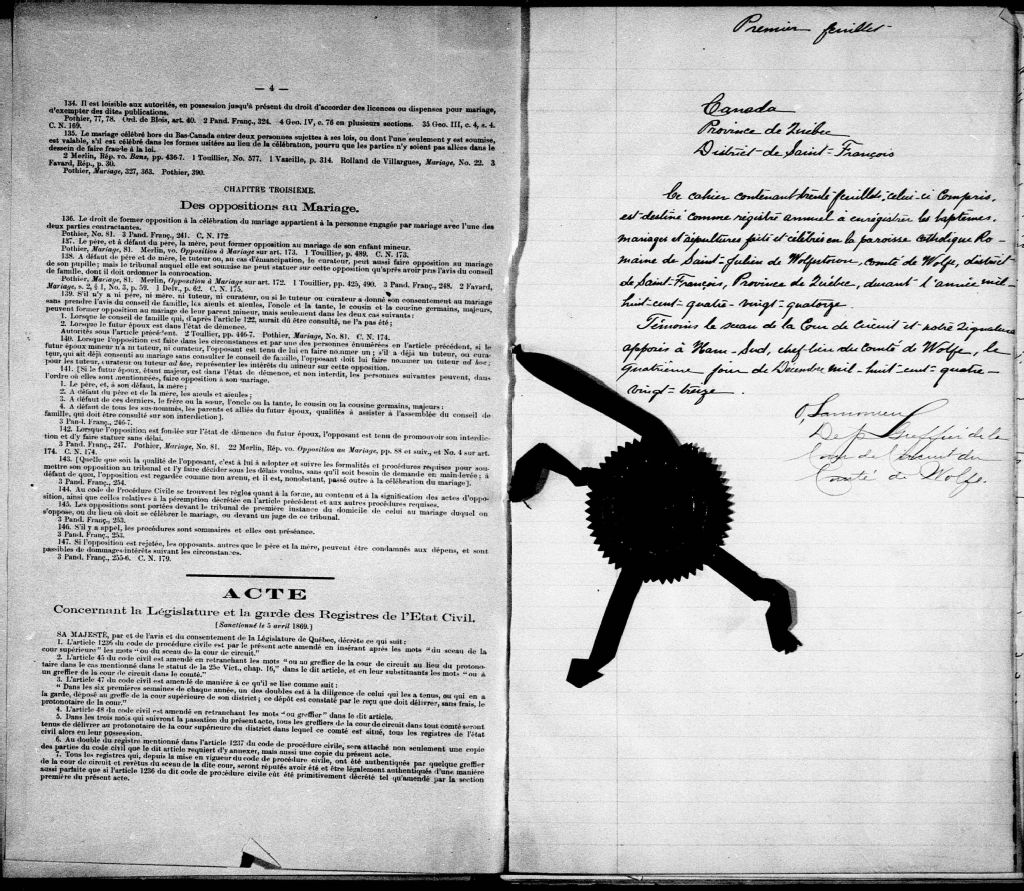 — 4 —
134. Il est loisible aux autorités, en possession jusqu'à présent du droit d'accorder des licences ou dispenses pour mariage,
d'exempter des dites publications.
Pothier, 77, 78. Ord. de Blois, art. 40. 2 Pand. Franç., 324. 4 Geo. IV, c. 76 en plusieurs sections. 35 Geo. III, c. 4, s. 4.
C. N. 169.
135. Le mariage célébré hors du Bas-Canada entre deux personnes sujettes à ses lois, ou dont l'une seulement y est soumise,
est valable, s'il est célébré dans les formes usitées au lieu de la célébration, pourvu que les parties n'y soient pas allées dans le
dessein de faire fraude à la loi.
2 Merlin, Rép. vo. Bans, pp. 436-7. 1 Touillier, No. 577. 1 Vazeille, p. 314. Rolland de Villargues, Mariage, No. 22. 3
Favard, Rép., p. 30.
Pothier, Mariage, 327, 363. Pothier, 390.
CHAPITRE TROISIÈME.
Des oppositions au Mariage.
136. Le droit de former opposition à la célébration du mariage appartient à la personne engagée par mariage avec l'une des
deux parties contractantes.
Pothier, No. 81. 3 Pand. Franç., 241. C. N. 172.
137. Le père, et à défaut du père, la mère, peut former opposition au mariage de son enfant mineur.
Pothier, Mariage, 81. Merlin, vo. Opposition à Mariage sur art. 173. 1 Touillier, p. 489. C. N. 173.
138. A défaut de père et de mère, le tuteur, ou, au cas d'émancipation, le curateur, peut aussi faire opposition au mariage
de son pupille; mais le tribunal auquel elle est soumise ne peut statuer sur cette opposition qu'après avoir pris l'avis du conseil
de famille, dont il doit ordonner la convocation.
Pothier, Mariage, 81. Merlin, Opposition à Mariage sur art. 172. 1 Touillier, pp. 425, 490. 3 Pand. Franç., 248. 2 Favard,
Mariage, s. 2, § 1, No. 3, p. 59. 1 Delv., p. 62. C. N. 175.
139. S'il n'y a ni père, ni mère, ni tuteur, ni curateur, ou si le tuteur ou curateur a donné son consentement au mariage
sans prendre l'avis du conseil de famille, les aieuls et aieules, l'oncle et la tante, le cousin et la cousine germains, majeurs,
peuvent former opposition au mariage de leur parent mineur, mais seulement dans les deux cas suivants:
1. Lorsque le conseil de famille qui, d'après l'article 122, aurait dû être consulté, ne l'a pas été;
2. Lorsque le futur époux est dans l'état de démence.
Autorités sous l'article précédent. 2 Touillier, pp. 446-7. Pothier, Mariage, No. 81. C. N. 174.
140. Lorsque l'opposition est faite dans les circonstances et par une des personnes énumérées en l'article précédent, si le
futur époux mineur n'a ni tuteur, ni curateur, l'opposant est tenu de lui en faire nommer un; s'il a déjà un tuteur, ou cura-
teur, qui ait déjà consenti au mariage sans consulter le conseil de famille, l'opposant doit lui faire nommer un tuteur ad hoc;
pour les tuteur, curateur ou tuteur ad hoc, représenter les intérêts du mineur sur cette opposition.
141. [Si le futur époux, étant majeur, est dans l'état de démence, et non interdit, les personnes suivantes peuvent, dans
l'ordre où elles sont mentionnées, faire opposition à son mariage.
1. Le père, et, à son défaut, la mère;
2. A défaut du père et de la mère, les aieuls et aieules;
3. A défaut de ces derniers, le frère ou la sœur, l'oncle ou la tante, le cousin ou la cousine germains, majeurs;
4. A défaut de tous les sus-nommés, les parents et alliés du futur époux, qualifiés à assister à l'assemblée du conseil de
famille, qui doit être consulté sur son interdiction].
3 Pand. Franç., 246-7.
142. Lorsque l'opposition est fondée sur l'état de démence du futur époux, l'opposant est tenu de promouvoir son interdic-
tion et d'y faire statuer sans délai.
3 Pand. Franç., 247. Pothier, Mariage, No. 81. 22 Merlin, Rép. vo. Opposition au Mariage, pp. 88 et suiv., et No. 4 sur art.
174. C. N. 174.
143. [Quelle que soit la qualité de l'opposant, c'est à lui à adopter et suivre les formalités et procédures requises pour sou-
mettre son opposition au tribunal et l'y faire décider sous les délais voulus, sans qu'il soit besoin de demande en main-levée; à
défaut de quoi, l'opposition est regardée comme non avenu, et il est, nonobstant, passé outre à la célébration du mariage].
3 Pand. Franç., 254.
144. Au code de Procédure Civile se trouvent les règles quant à la forme, au contenu et à la signification des actes d'oppo-
sition, ainsi que celles relatives à la péremption décrétée en l'article précédent et aux autres procédures requises.
145. Les oppositions sont portées devant le tribunal de première instance du domicile de celui au mariage duquel on
s'oppose, ou du lieu où doit se célébrer le mariage, ou devant un juge de ce tribunal.
3 Pand. Franç., 253.
146. S'il y a appel, les procédures sont sommaires et elles ont préséance.
3 Pand. Franç., 253.
147. Si l'opposition est rejetée, les opposants, autres que le père et la mère, peuvent être condamnés aux dépens, et sont
passibles de dommages-intérêts suivant les circonstances.
3 Pand. Franç., 255-6. C. N. 179.
ACTE
Concernant la Législature et la garde des Registres de l'Etat Civil.
[Sanctionné le 5 avril 1869.]
SA MAJESTÉ, par et de l'avis et du consentement de la Législature de Québec, décrète ce qui suit:
1. L'article 1236 du code de procédure civile est par le présent acte amendé en insérant après les mots "du sceau de la
cour supérieure" les mots "ou du sceau de la cour de circuit."
2. L'article 45 du code civil est amendé en retranchant les mots "ou au greffier de la cour de circuit au lieu du protono-
taire dans le cas mentionné dans le statut de la 25e Vict., chap. 16," dans le dit article, et en leur substituants les mots "ou à
un greffier de la cour de circuit dans le comté."
3. L'article 47 du code civil est amendé de manière à ce qu'il se lise comme suit:
"Dans les six premières semaines de chaque année, un des doubles est à la diligence de celui qui les a tenus, ou qui en a
la garde, déposé au greffe de la cour supérieure de son district; ce dépôt est constaté par le reçu que doit délivrer, sans frais, le
protonotaire de la cour."
4. L'article 48 du code civil est amendé en retranchant les mots "ou greffier" dans le dit article.
5. Dans les trois mois qui suivront la passation du présent acte, tous les greffiers de la cour de circuit dans tout comté seront
tenus de délivrer au protonotaire de la cour supérieure du district dans lequel ce comté est situé, tous les registres de l'état
civil alors en leur possession.
6. Au double du registre mentionné dans l'article 1237 du code de procédure civile, sera attaché non seulement une copie
des parties du code civil que le dit article requiert d'y annexer, mais aussi une copie du présent acte.
7. Tous les registres qui, depuis la mise en vigueur du code de procédure civile, ont été authentiqués par quelque greffier
de la cour de circuit et revêtus du sceau de la dite cour, seront réputés avoir été et être légalement authentiqués d'une manière
aussi parfaite que si l'article 1236 du dit code de procédure civile eût été primitivement décrété tel qu'amendé par la section
première du présent acte.
Premier feuillet
Canada
Province de Québec
District de Saint-François
Ce cahier contenant trente feuillets, celui-ci compris,
est destiné comme registre annuel à enregistrer les baptêmes,
mariages et sépultures faits et célébrés en la paroisse catholique Ro-
maine de Saint-Julien de Wolfestown, comté de Wolfe, district
de Saint-François, Province de Québec, durant l'année mil-
huit-cent-quatre-vingt-quatorze.
Témoins le sceau de la Cour de Circuit et notre signature
apposés à Ham-Sud, chef-lieu du Comté de Wolfe, le
quatrième jour de Décembre mil-huit-cent-quatre-
vingt-treize.
Dep Greffier de la
Cour de Circuit du
Comté de Wolfe.